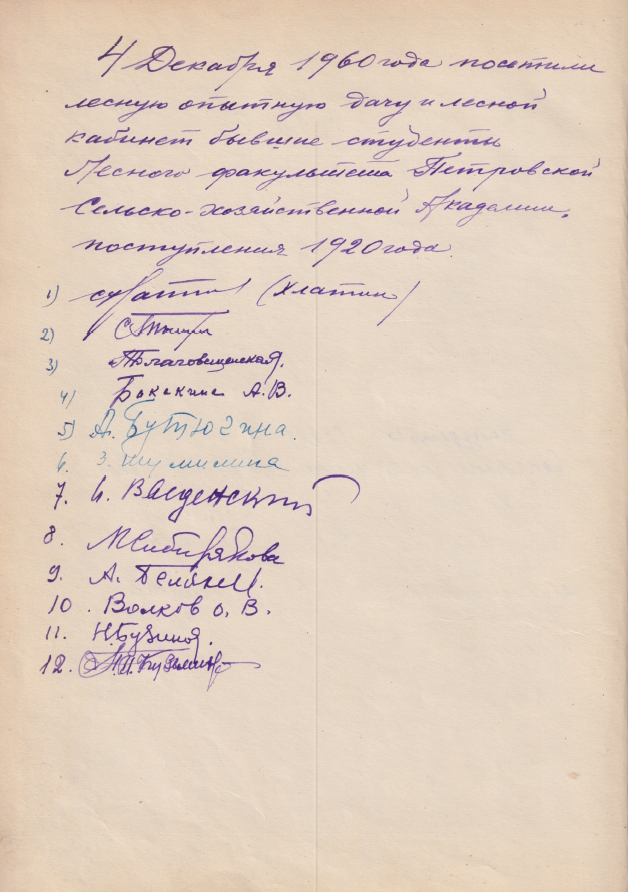 4 Декабря 1960 года посетили
лесную опытную дачу и лесной
кабинет бывшие студенты
Лесного факультета Петровской
Сельско-хозяйственной Академии,
поступления 1920 года.
1) (Хлатин)
2)
3) Благовещенская.
4) Бокакина А.В.
5) Ал. Бутюгина.
6. З. Шумилина
7.
8. М Сибирякова
9. А.
10. Волков О. В.
11. Н.
12.